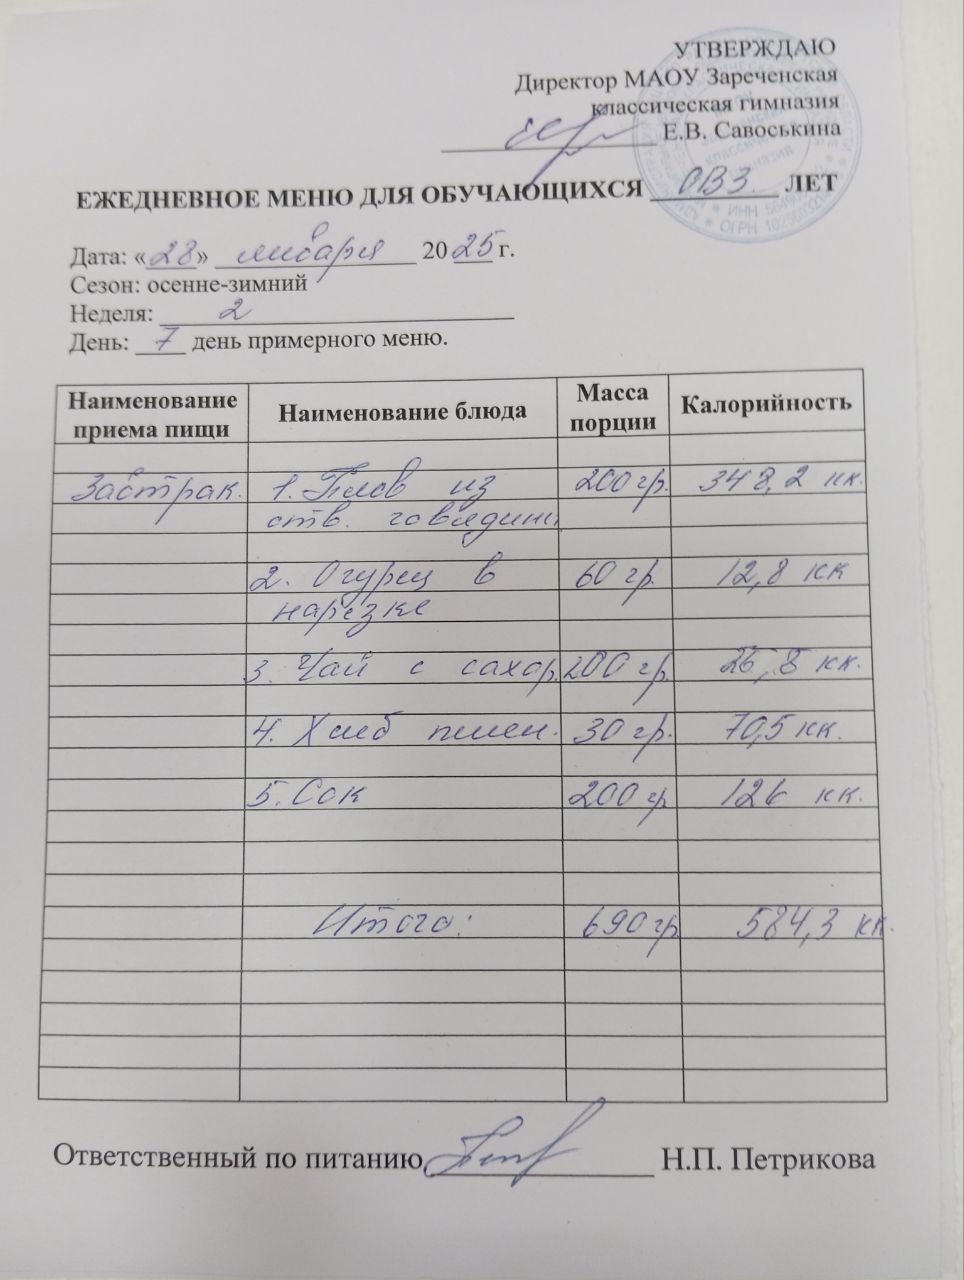 УТВЕРЖДАЮ
Директор МАОУ Зареченская
классическая гимназия
Е.В. Савоськина
ЕЖЕДНЕВНОЕ МЕНЮ ДЛЯ ОБУЧАЮЩИХСЯ ОВЗ ЛЕТ
Дата: «28» января 2025 г.
Сезон: осенне-зимний
Неделя: 2
День: 7 день примерного меню.
Наименование приема пищи Наименование блюда Масса порции Калорийность
Завтрак. 1. Плов из 200 гр. 348,2 кк.
отв. говядины
2. Огурец в 60 гр. 12,8 кк
нарезке
3. Чай с сахар. 200 гр. 26,8 кк.
4. Хлеб пшен. 30 гр. 70,5 кк.
5. Сок 200 гр 126 кк.
Итого: 690 гр. 584,3 кк.
Ответственный по питанию Н.П. Петрикова